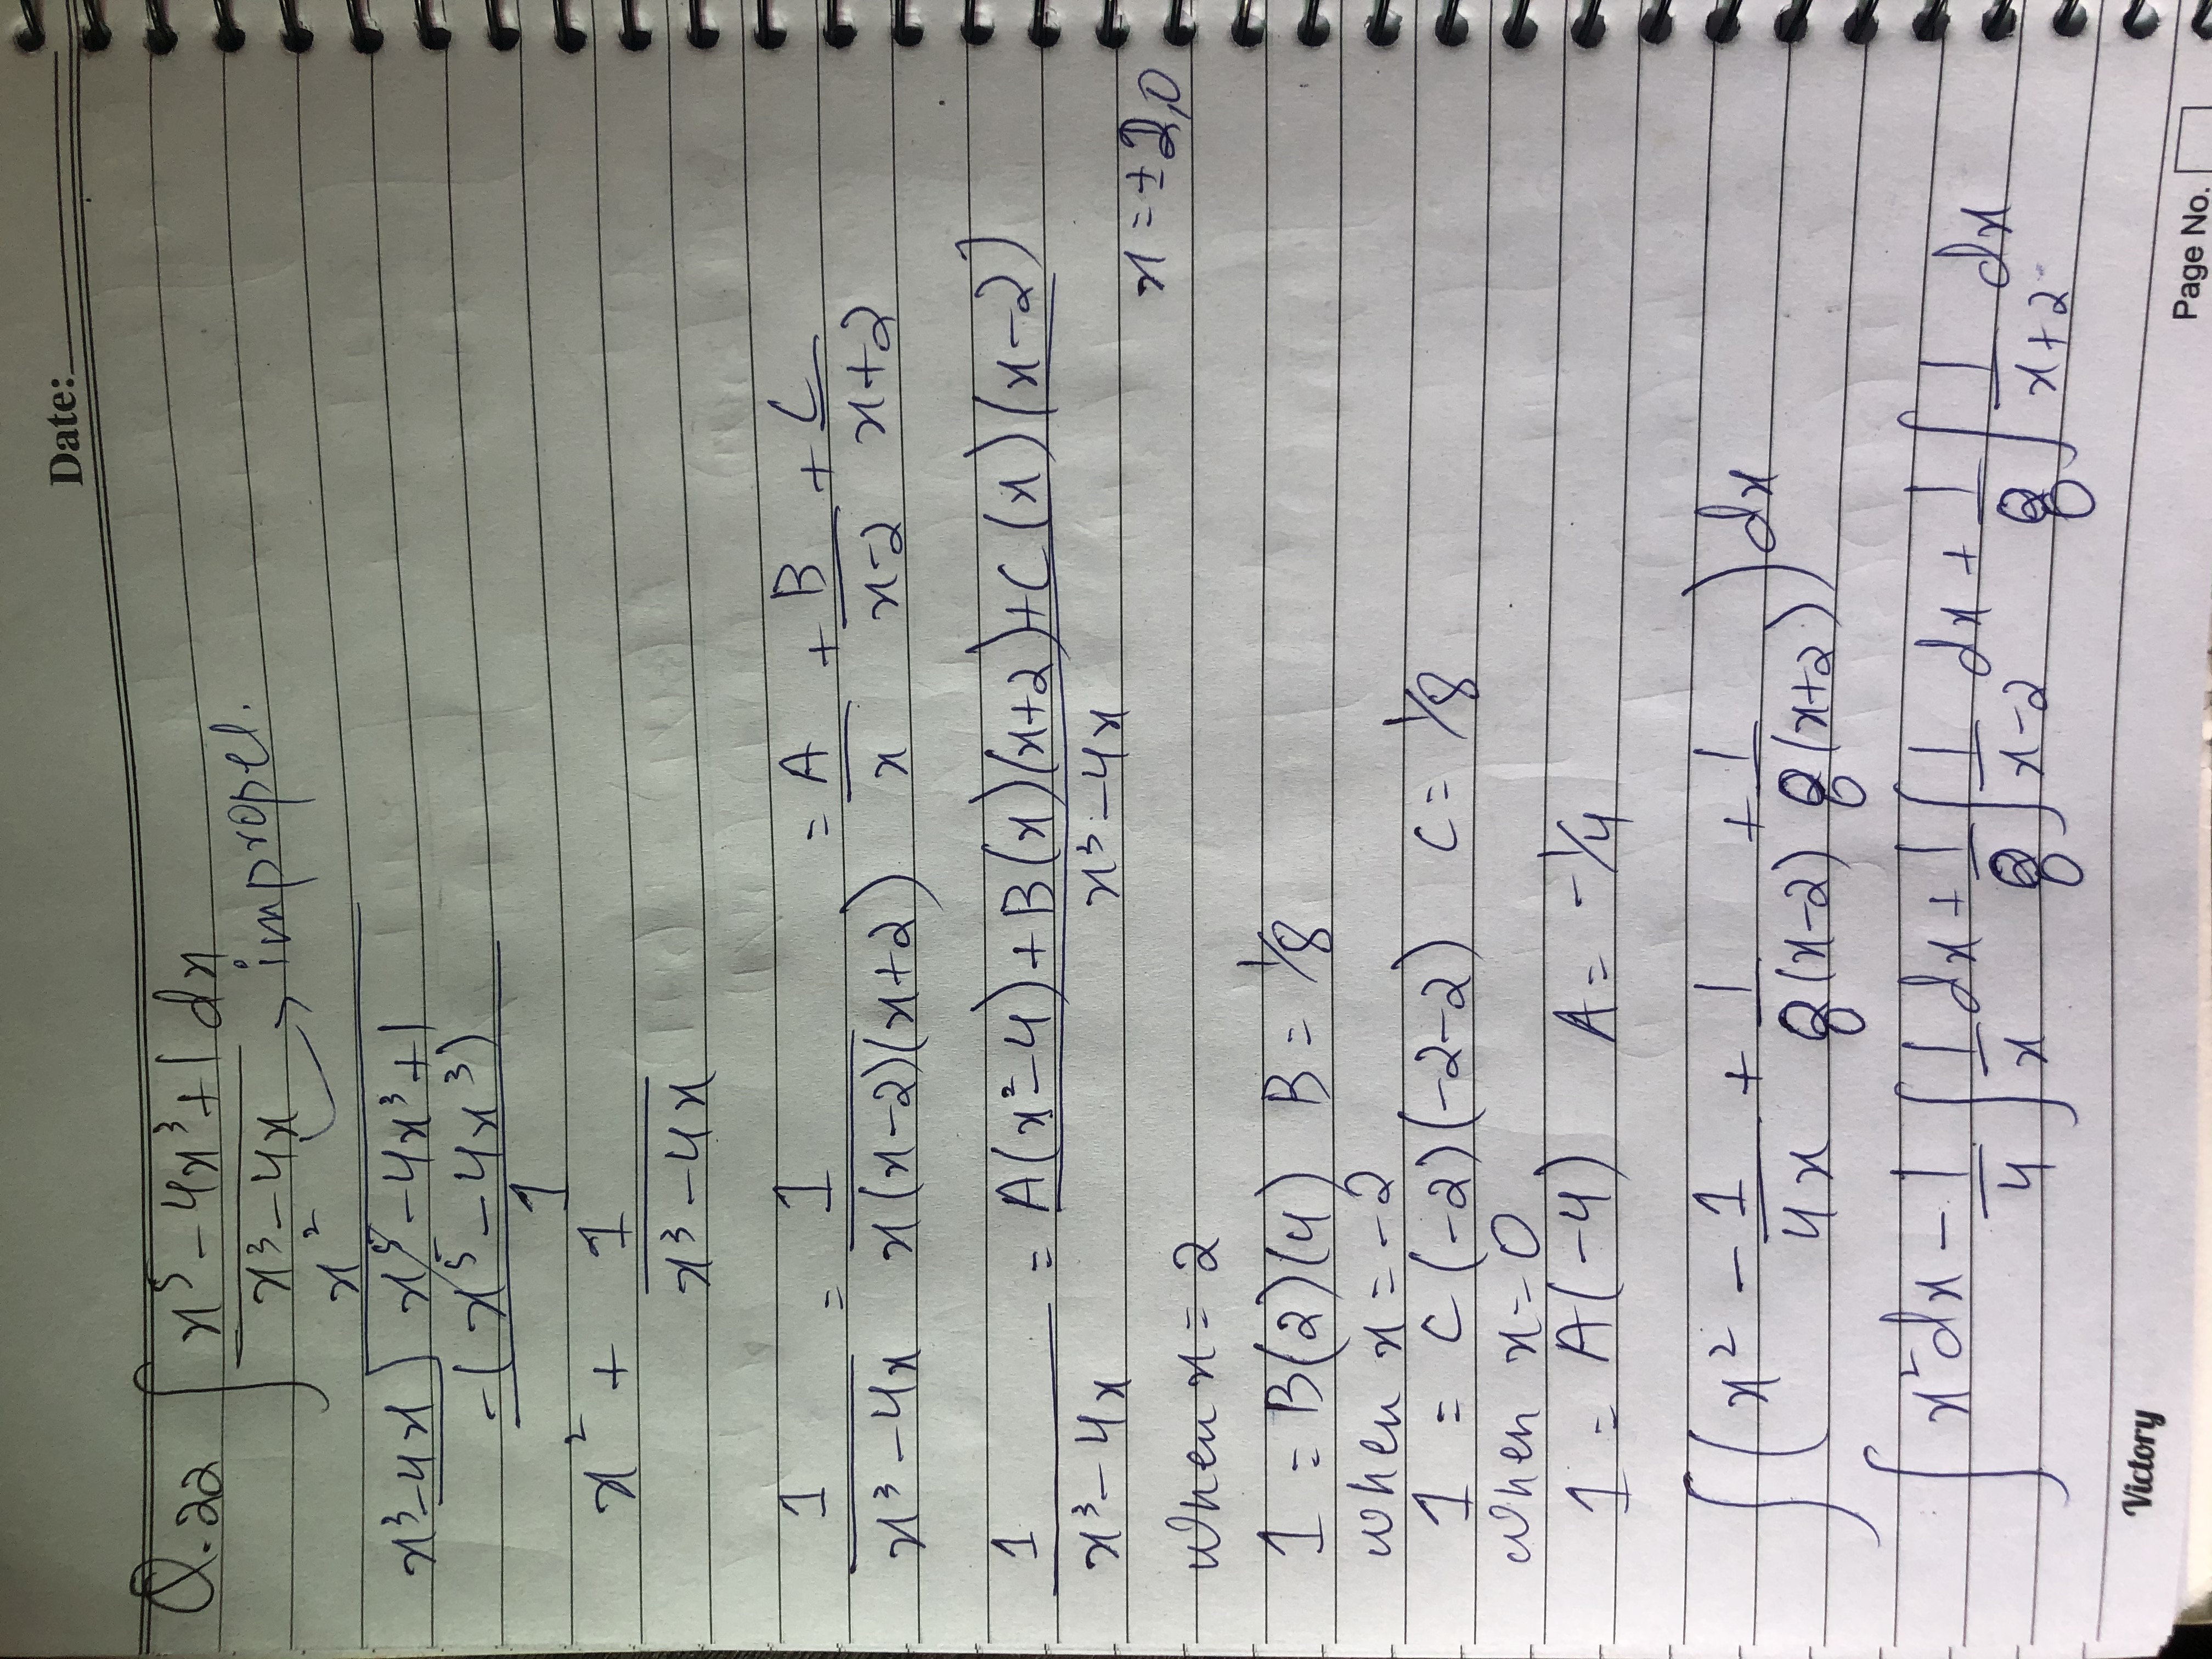 Date:
Q.22 ∫ x⁵ - 4x³ + 1 / x³ - 4x dx
→ improper.
x²
x³ - 4x ) x⁵ - 4x³ + 1
-( x⁵ - 4x³ )
1
x² + 1 / x³ - 4x
1 / x³ - 4x = 1 / x(x-2)(x+2) = A / x + B / x-2 + C / x+2
1 / x³ - 4x = A(x²-4) + B(x)(x+2) + C(x)(x-2) / x³ - 4x
x = ±2,0
when x = 2
1 = B(2)(4) B = 1/8
when x = -2
1 = C(-2)(-2-2) C = 1/8
when x = 0
1 = A(-4) A = -1/4
∫ ( x² - 1 / 4x + 1 / 8(x-2) + 1 / 8(x+2) ) dx
∫ x² dx - 1/4 ∫ 1/x dx + 1/8 ∫ 1 / x-2 dx + 1/8 ∫ 1 / x+2 dx
Victory
Page No.